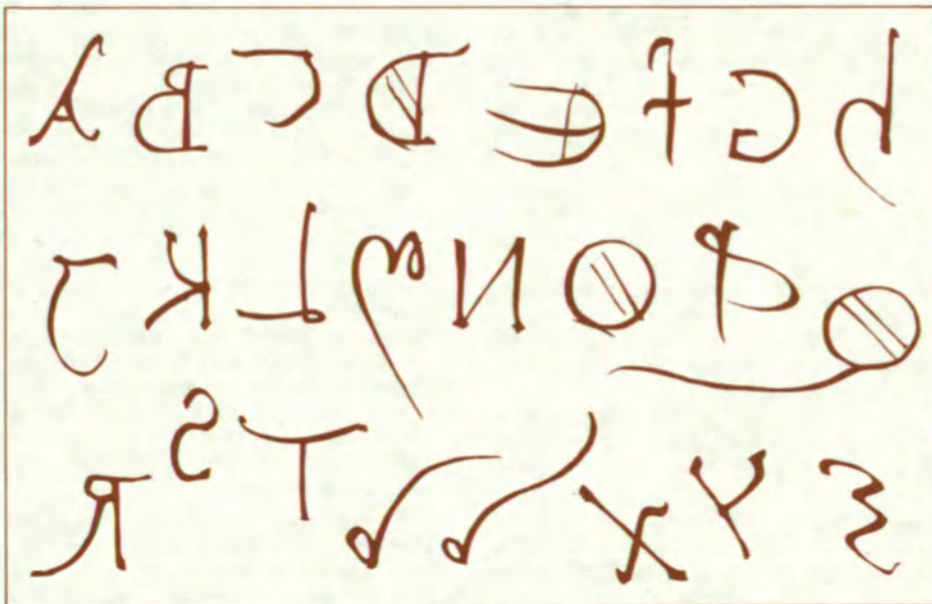 A B C D E f G h
J K L M N O P Q
R S T V X Y Z